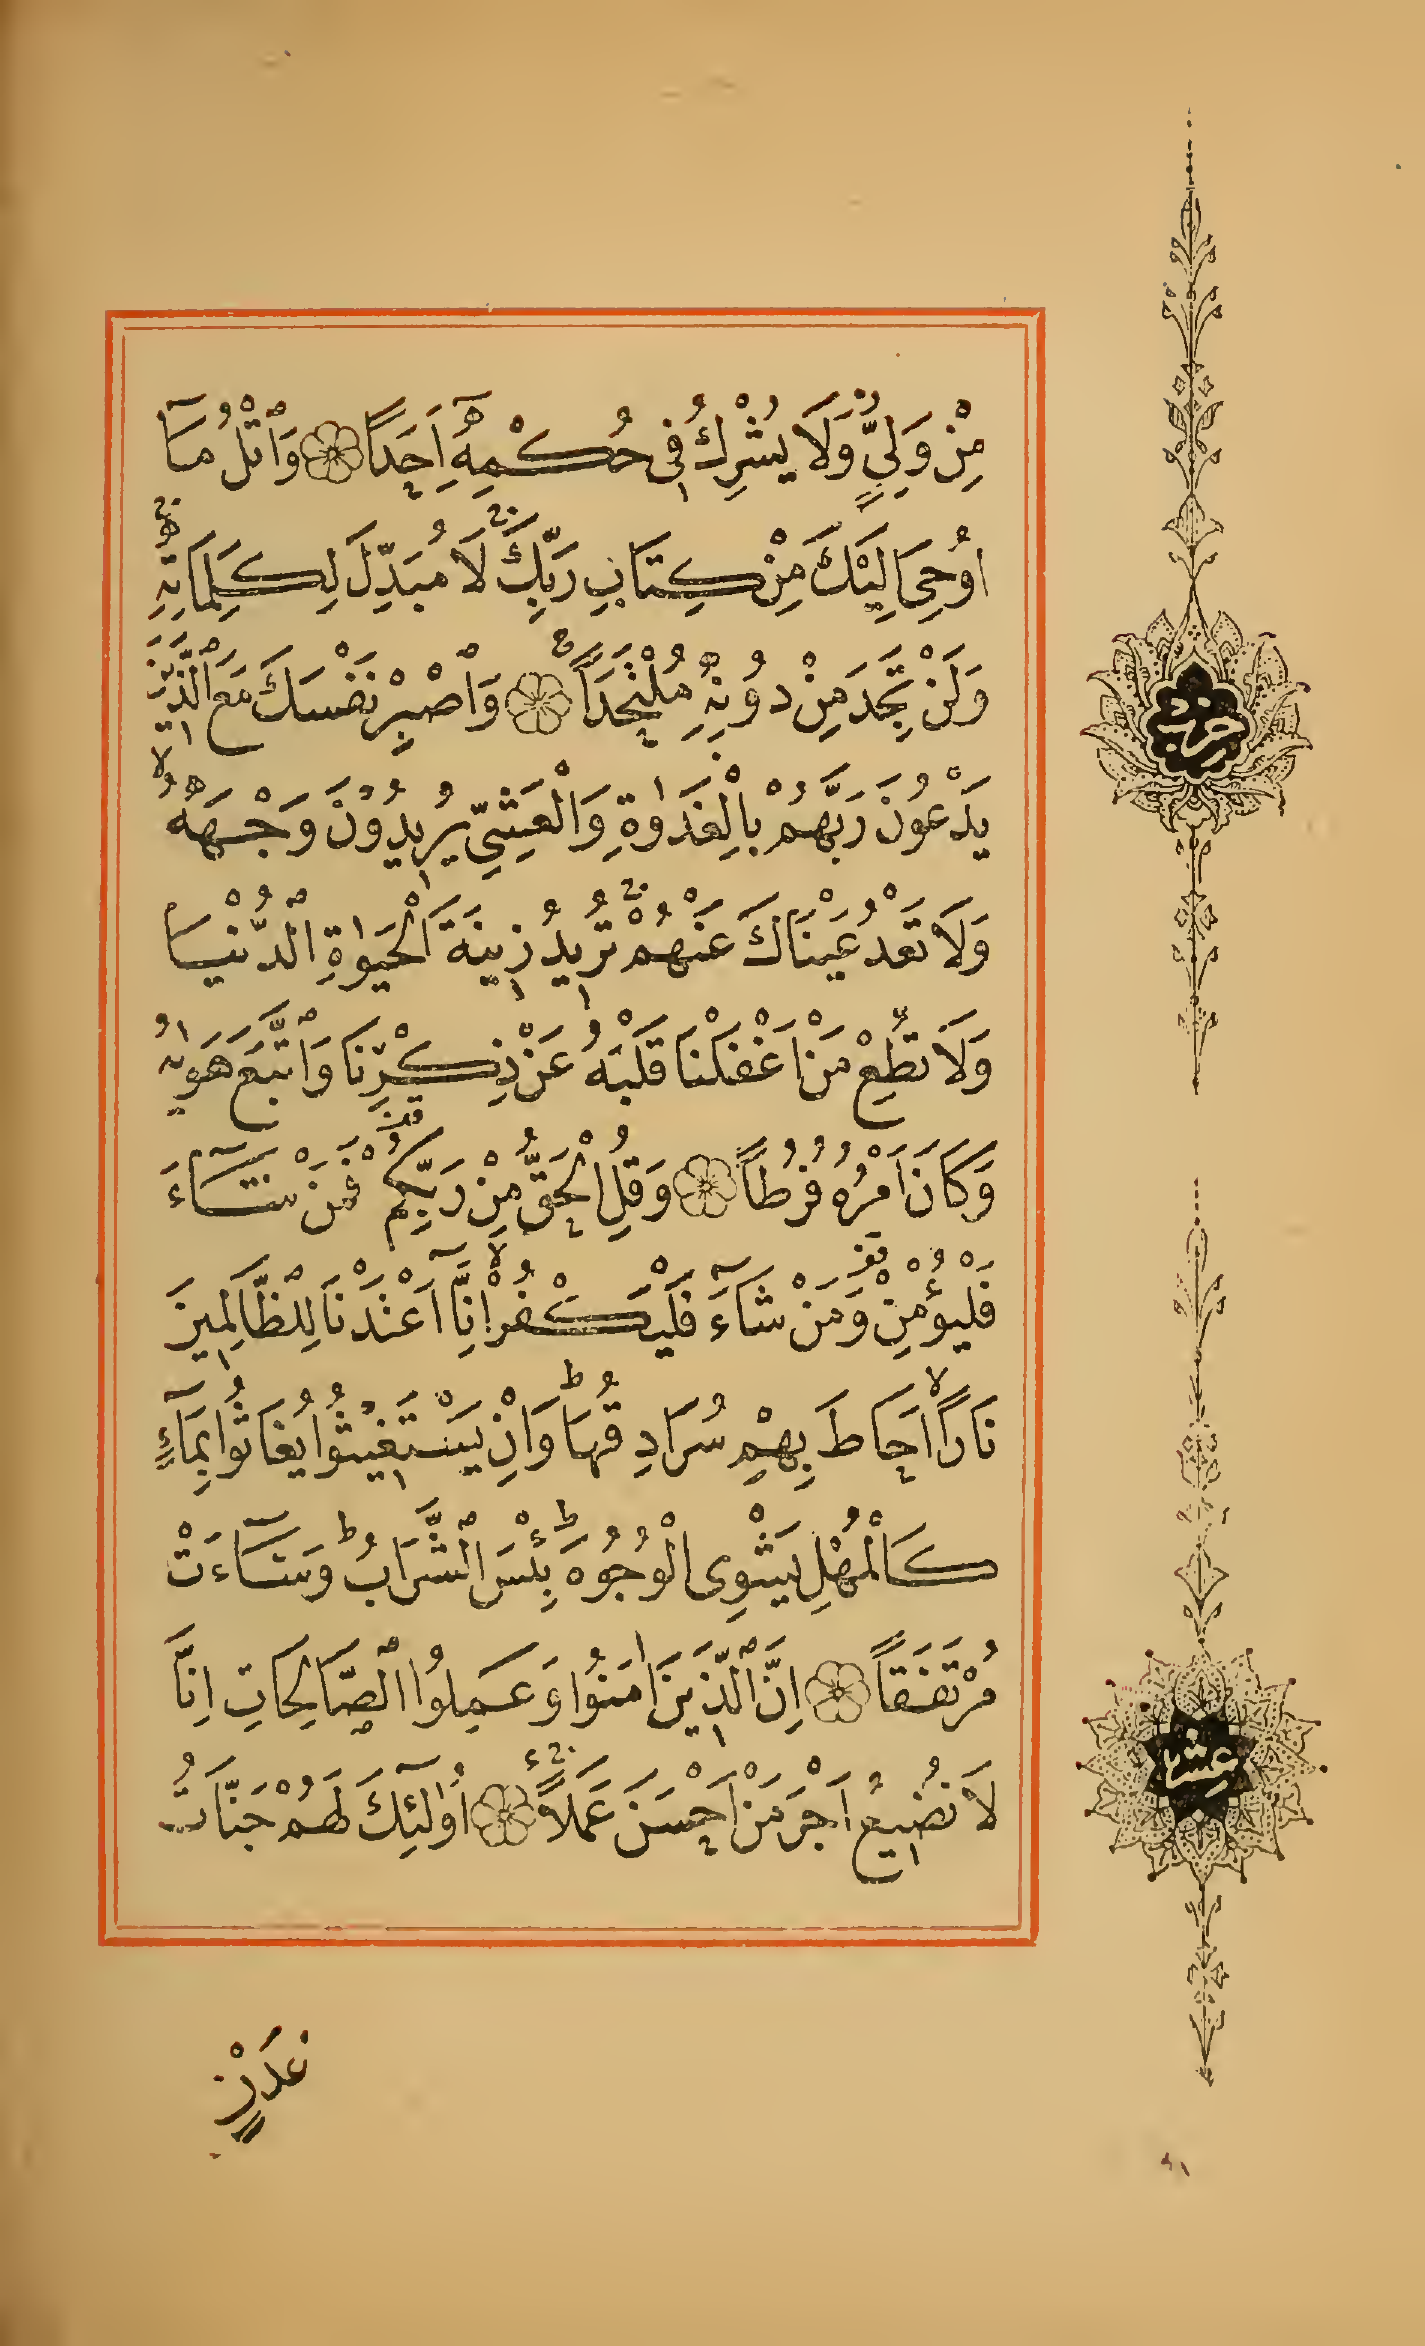 مِنْ وَلِيٍّ وَلَا يُشْرِكُ فِى حُكْمِهِٓ اَحَدًا وَاتْلُ مَٓا
اُوحِىَ اِلَيْكَ مِنْ كِتَابِ رَبِّكَ لَا مُبَدِّلَ لِكَلِمَاتِهِ
وَلَنْ تَجِدَ مِنْ دُونِهِ مُلْتَحَدًا وَاصْبِرْ نَفْسَكَ مَعَ الَّذِينَ
يَدْعُونَ رَبَّهُمْ بِالْغَدٰوةِ وَالْعَشِىِّ يُرِيدُونَ وَجْهَهُ
وَلَا تَعْدُ عَيْنَاكَ عَنْهُمْ تُرِيدُ زِينَةَ الْحَيٰوةِ الدُّنْيَا
وَلَا تُطِعْ مَنْ اَغْفَلْنَا قَلْبَهُ عَنْ ذِكْرِنَا وَاتَّبَعَ هَوٰيهُ
وَكَانَ اَمْرُهُ فُرُطًا وَقُلِ الْحَقُّ مِنْ رَبِّكُمْ فَمَنْ شَٓاءَ
فَلْيُؤْمِنْ وَمَنْ شَٓاءَ فَلْيَكْفُرْ اِنَّٓا اَعْتَدْنَا لِلظَّالِمِينَ
نَارًا اَحَاطَ بِهِمْ سُرَادِقُهَا وَاِنْ يَسْتَغِيثُوا يُغَاثُوا بِمَٓاءٍ
كَالْمُهْلِ يَشْوِى الْوُجُوهَ بِئْسَ الشَّرَابُ وَسَٓاءَتْ
مُرْتَفَقًا اِنَّ الَّذِينَ اٰمَنُوا وَعَمِلُوا الصَّالِحَاتِ اِنَّا
لَا نُضِيعُ اَجْرَ مَنْ اَحْسَنَ عَمَلًا اُولٰٓئِكَ لَهُمْ جَنَّاتُ
عَدْنٍ
حزب
عشر